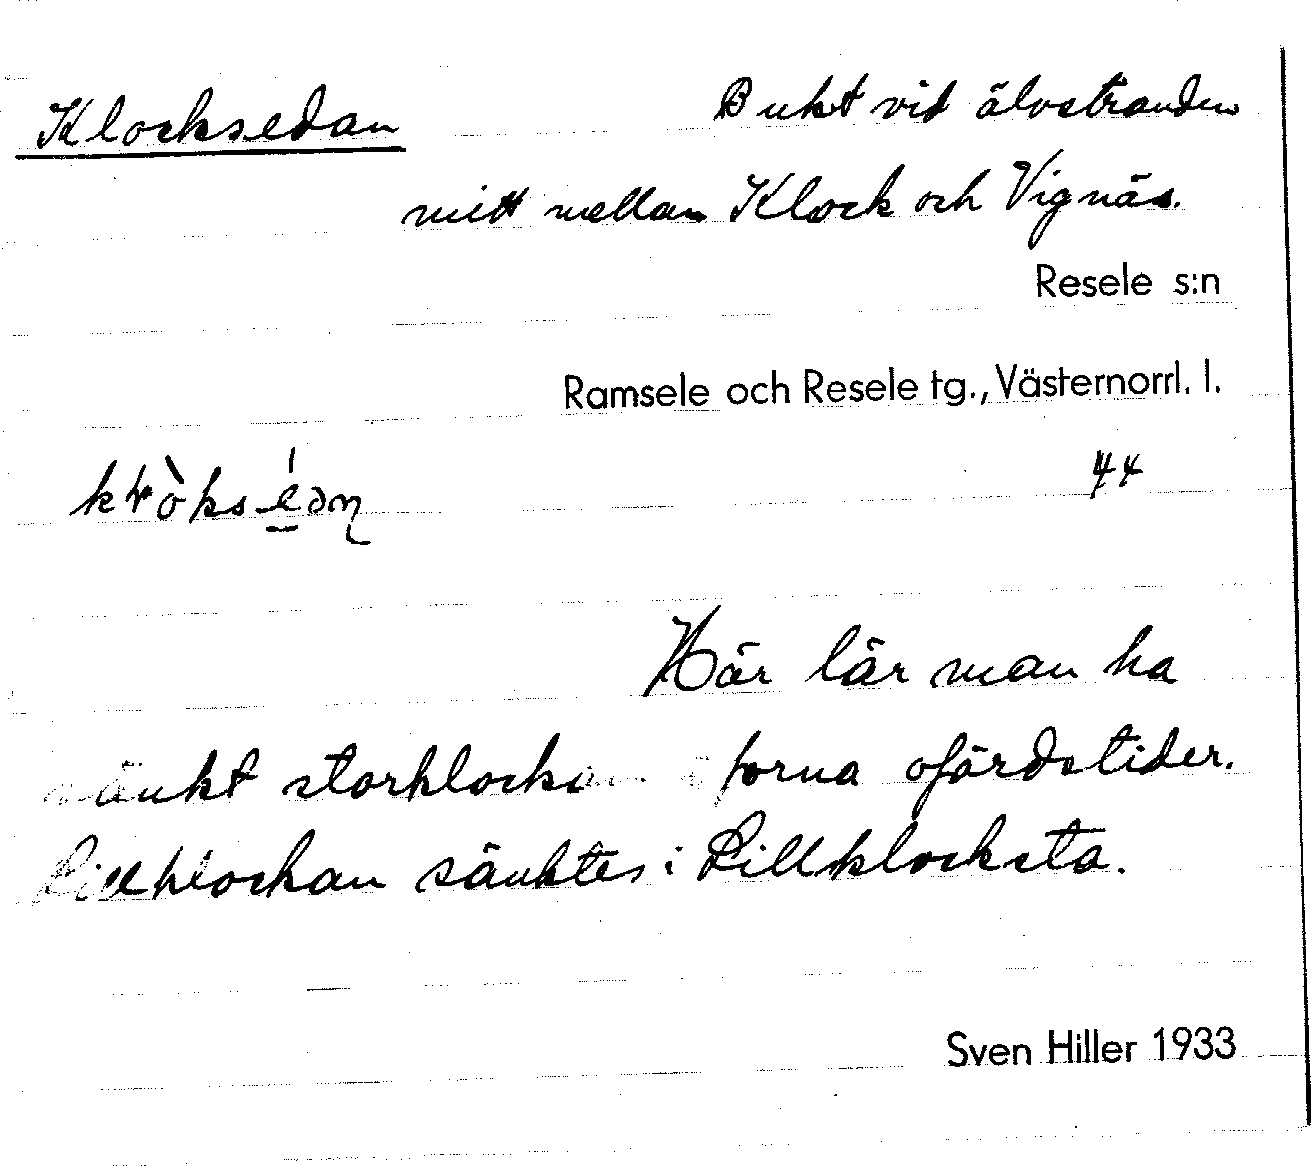 Klocksedan Bukt vid älvstranden
mitt mellan Klock och Vignäs.
Resele s:n
Ramsele och Resele tg., Västernorrl. l.
44
Här lär man ha
sänkt storklockan i forna ofärdstider.
Lillklockan sänktes i Lillklocksta.
Sven Hiller 1933